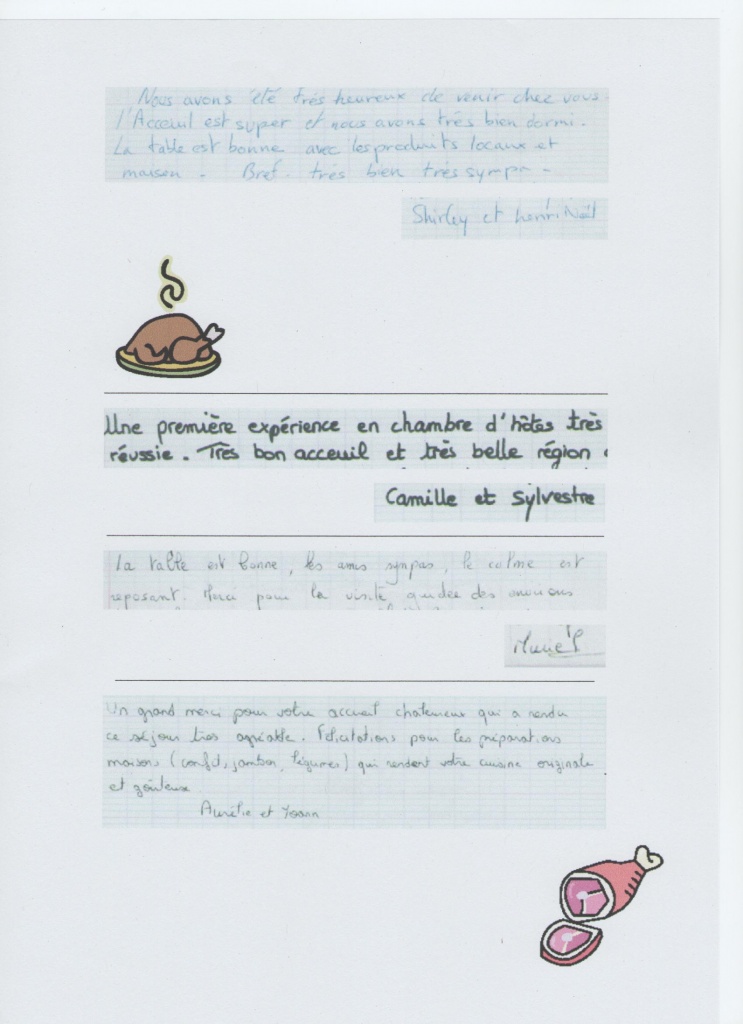 Nous avons été très heureux de venir chez vous.
l'Acceuil est super et nous avons très bien dormi.
La table est bonne avec les produits locaux et
maison. Bref. très bien très sympa.
Shirley et henri
Une première expérience en chambre d'hôtes très
réussie. Très bon acceuil et très belle région
Camille et Sylvestre
La table est bonne, les amis sympas, le calme est
reposant. Merci pour la visite guidée des
Un grand merci pour votre accueil chaleureux qui a rendu
ce séjour très agréable. Félicitations pour les préparations
maisons (confit, jambon, légumes) qui rendent votre cuisine originale
et goûteuse
Aurélie et Yoann